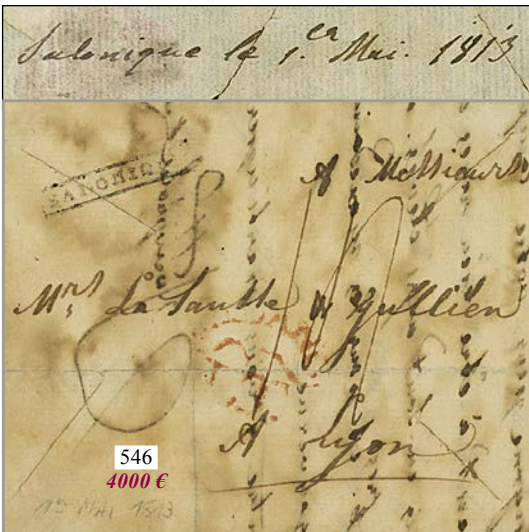 Salonique le 1.er Mai. 1813
A Messieurs
Mrs La Saulle & Gullien
A Lyon
546
4000 €
1er MAI 1813